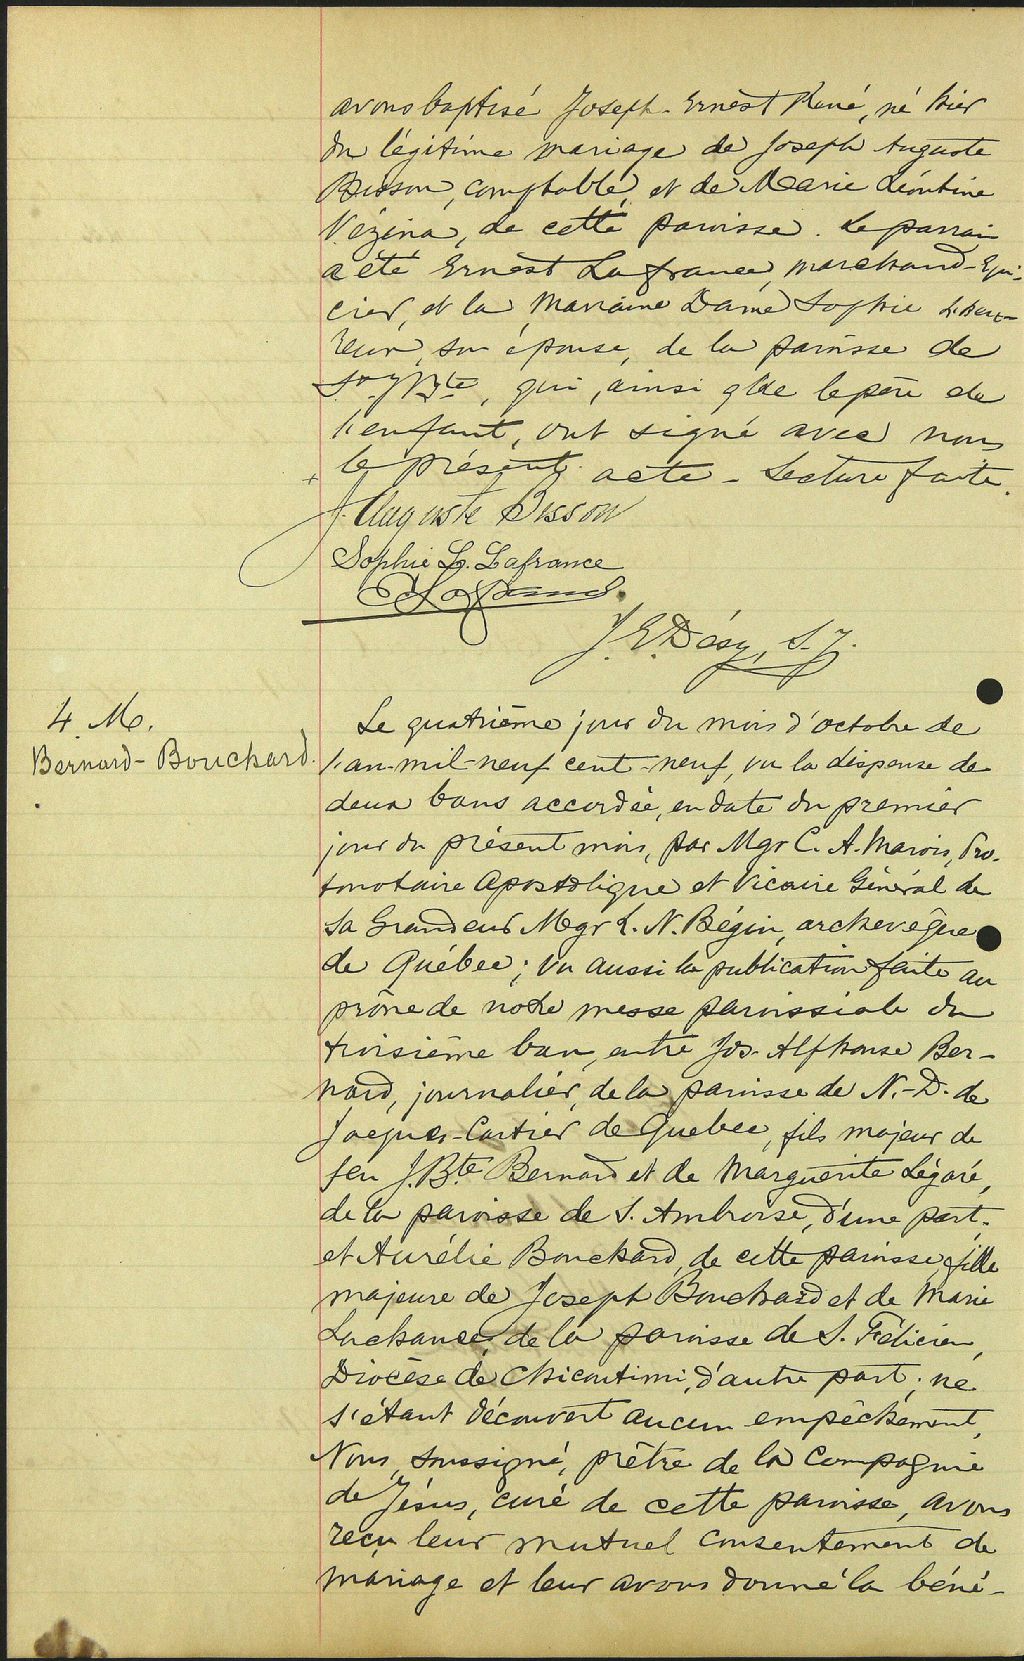 avons baptisé Joseph-Ernest René, né hier
du légitime mariage de Joseph Auguste
Bisson, comptable, et de Marie Léontine
Vézina, de cette paroisse. Le parrain
a été Ernest Lafrance, marchand-Epi-
cier, et la Marraine Dame Sophie
son épouse, de la paroisse de
St J. Bte, qui, ainsi que le père de
l'enfant, ont signé avec nous
le présent acte - Lecture faite.
J. Auguste Bisson
Sophie L. Lafrance
J. E. Désy, S. J.
4 M.
Bernard-Bouchard.
Le quatrième jour du mois d'octobre de
l'an-mil-neuf cent-neuf, vu la dispense de
deux bans accordée, en date du premier
jour du présent mois, par Mgr C. A. Marois, Pro-
tonotaire Apostolique et Vicaire Général de
Sa Grandeur Mgr L. N. Bégin, archevêque
de Québec; vu aussi la publication faite au
prône de notre messe paroissiale du
troisième ban, entre Jos. Alphonse Ber-
nard, journalier, de la paroisse de N.-D. de
Jacques-Cartier de Quebec, fils majeur de
feu J. Bte Bernard et de Marguerite Légaré,
de la paroisse de S. Ambroise, d'une part,
et Aurélie Bouchard, de cette paroisse, fille
majeure de Joseph Bouchard et de Marie
Lachance, de la paroisse de S. Félicien,
Diocèse de Chicoutimi, d'autre part; ne
s'étant découvert aucun empêchement,
Nous, soussigné, prêtre de la Compagnie
de Jésus, curé de cette paroisse, avons
reçu leur mutuel consentement de
mariage et leur avons donné la béné-